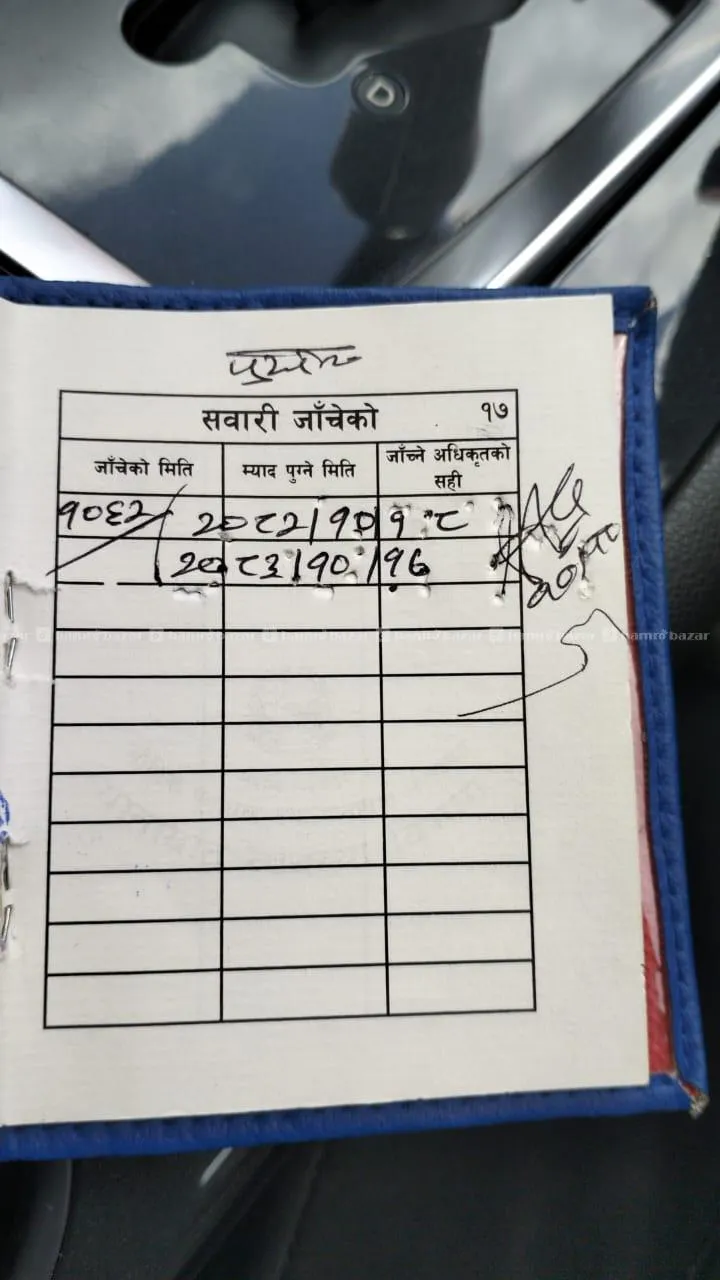 सवारी जाँचेको १७
जाँचेको मिति म्याद पुग्ने मिति जाँच्ने अधिकृतको सही
१०६२ २०८२|१०|१८
२०८३|१०|१६
hamro bazar hamro bazar hamro bazar hamro bazar hamro bazar hamro bazar